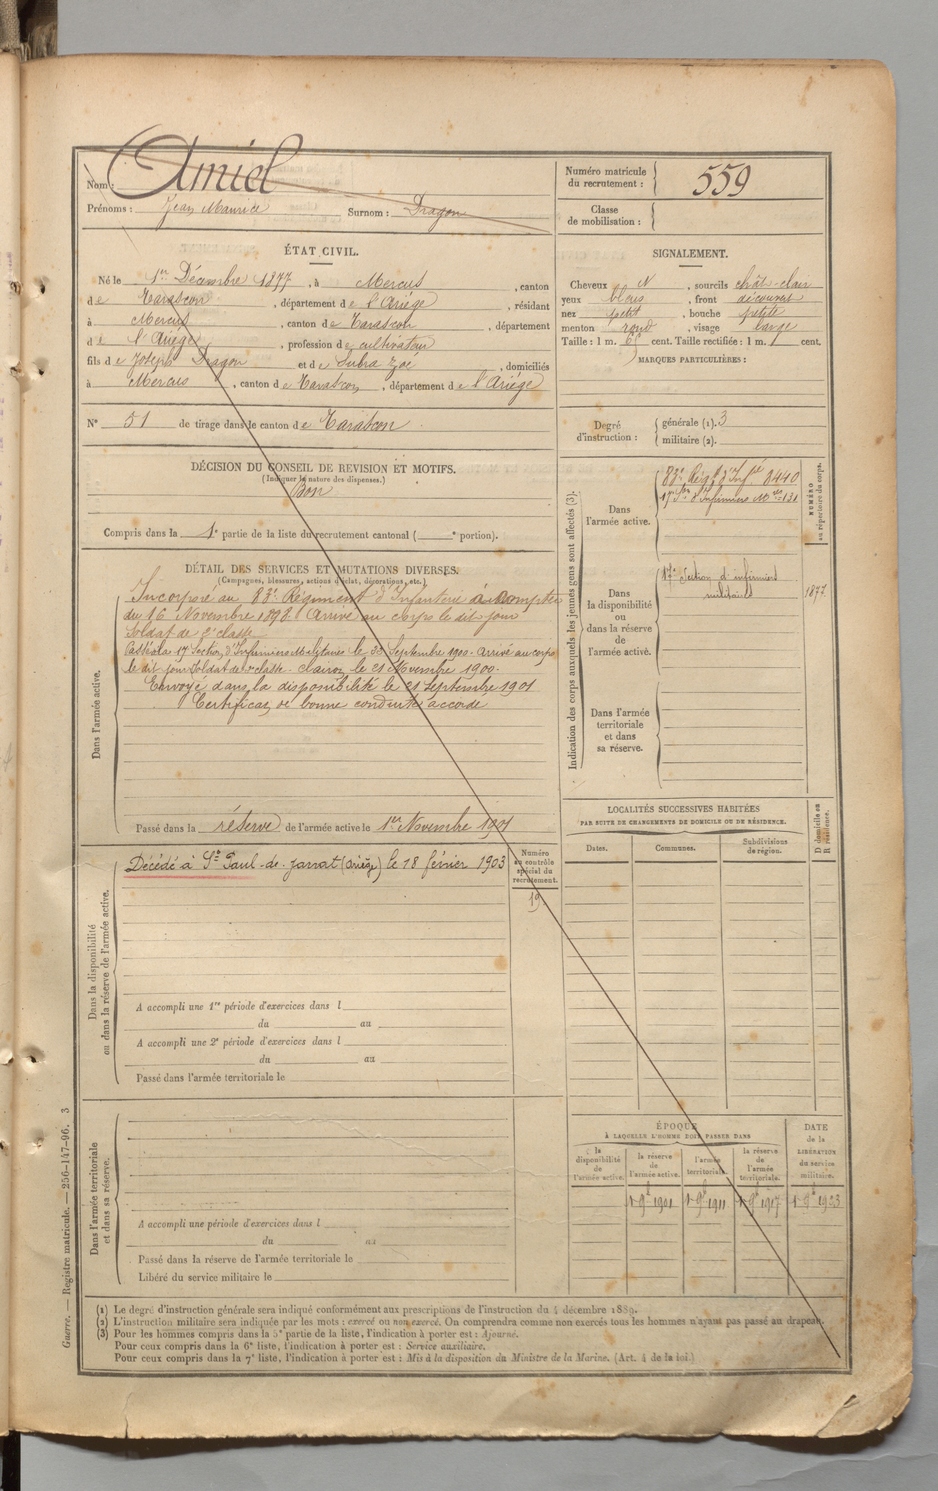 Nom : Amiel
Prénoms : Jean Maurice Surnom : Dragon
Numéro matricule du recrutement : 559
Classe de mobilisation :
ÉTAT CIVIL.
Né le 1er Décembre 1877, à Mercus, canton
de Tarascon, département de l'Ariège, résidant
à Mercus, canton de Tarascon, département
de l'Ariège, profession de cultivateur
fils de Joseph Dragon et de Subra Zoé, domiciliés
à Mercus, canton de Tarascon, département de l'Ariège
N° 51 de tirage dans le canton de Tarascon
SIGNALEMENT.
Cheveux N, sourcils chât-clair
yeux bleus, front découvert
nez petit, bouche petite
menton rond, visage large
Taille : 1 m. 65 cent. Taille rectifiée : 1 m. cent.
MARQUES PARTICULIÈRES :
Degré d'instruction : générale (1). 3
militaire (2).
DÉCISION DU CONSEIL DE REVISION ET MOTIFS.
(Indiquer la nature des dispenses.)
Bon
Compris dans la 1e partie de la liste du recrutement cantonal ( e portion).
DÉTAIL DES SERVICES ET MUTATIONS DIVERSES.
(Campagnes, blessures, actions d'éclat, décorations, etc.)
Dans l'armée active.
Incorporé au 83e Régiment d'Infanterie à compter
du 16 Novembre 1898. Arrivé au corps le dit jour
Soldat de 2e classe
17e Section d'Infirmiers Militaires le Septembre 1900. Arrivé au corps
le dit jour Soldat de 2e classe. clairon le 21 Novembre 1900.
Envoyé dans la disponibilité le 21 Septembre 1901
Certificat de bonne conduite accordé
Passé dans la réserve de l'armée active le 1er Novembre 1901
Indication des corps auxquels les jeunes gens sont affectés (3).
NUMÉRO au répertoire du corps.
Dans l'armée active.
83e Régt d'Infrie 3440
17e Son d'Infirmiers Mres 131
Dans la disponibilité ou dans la réserve de l'armée active.
17e Section d'infirmiers
militaires 1877
Dans l'armée territoriale et dans sa réserve.
Dans la disponibilité ou dans la réserve de l'armée active.
Décédé à St Paul-de-Jarrat (Ariège) le 18 février 1903
Numéro au contrôle spécial du recrutement.
19
A accompli une 1re période d'exercices dans l
du au
A accompli une 2e période d'exercices dans l
du au
Passé dans l'armée territoriale le
LOCALITÉS SUCCESSIVES HABITÉES
PAR SUITE DE CHANGEMENTS DE DOMICILE OU DE RÉSIDENCE.
Dates. Communes. Subdivisions de région. D domicile ou R résidence.
Dans l'armée territoriale et dans sa réserve.
A accompli une période d'exercices dans l
du au
Passé dans la réserve de l'armée territoriale le
Libéré du service militaire le
ÉPOQUE
À LAQUELLE L'HOMME DOIT PASSER DANS
la disponibilité de l'armée active. la réserve de l'armée active. l'armée territoriale. la réserve de l'armée territoriale. DATE de la LIBÉRATION du service militaire.
1er 9b 1901 1er 9b 1911 1er 9b 1917 1er 9b 1923
(1) Le degré d'instruction générale sera indiqué conformément aux prescriptions de l'instruction du 4 décembre 1889.
(2) L'instruction militaire sera indiquée par les mots : exercé ou non exercé. On comprendra comme non exercés tous les hommes n'ayant pas passé au drapeau.
(3) Pour les hommes compris dans la 5e partie de la liste, l'indication à porter est : Ajourné.
Pour ceux compris dans la 6e liste, l'indication à porter est : Service auxiliaire.
Pour ceux compris dans la 7e liste, l'indication à porter est : Mis à la disposition du Ministre de la Marine. (Art. 4 de la loi.)
Guerre. — Registre matricule. — 256-147-96. 3